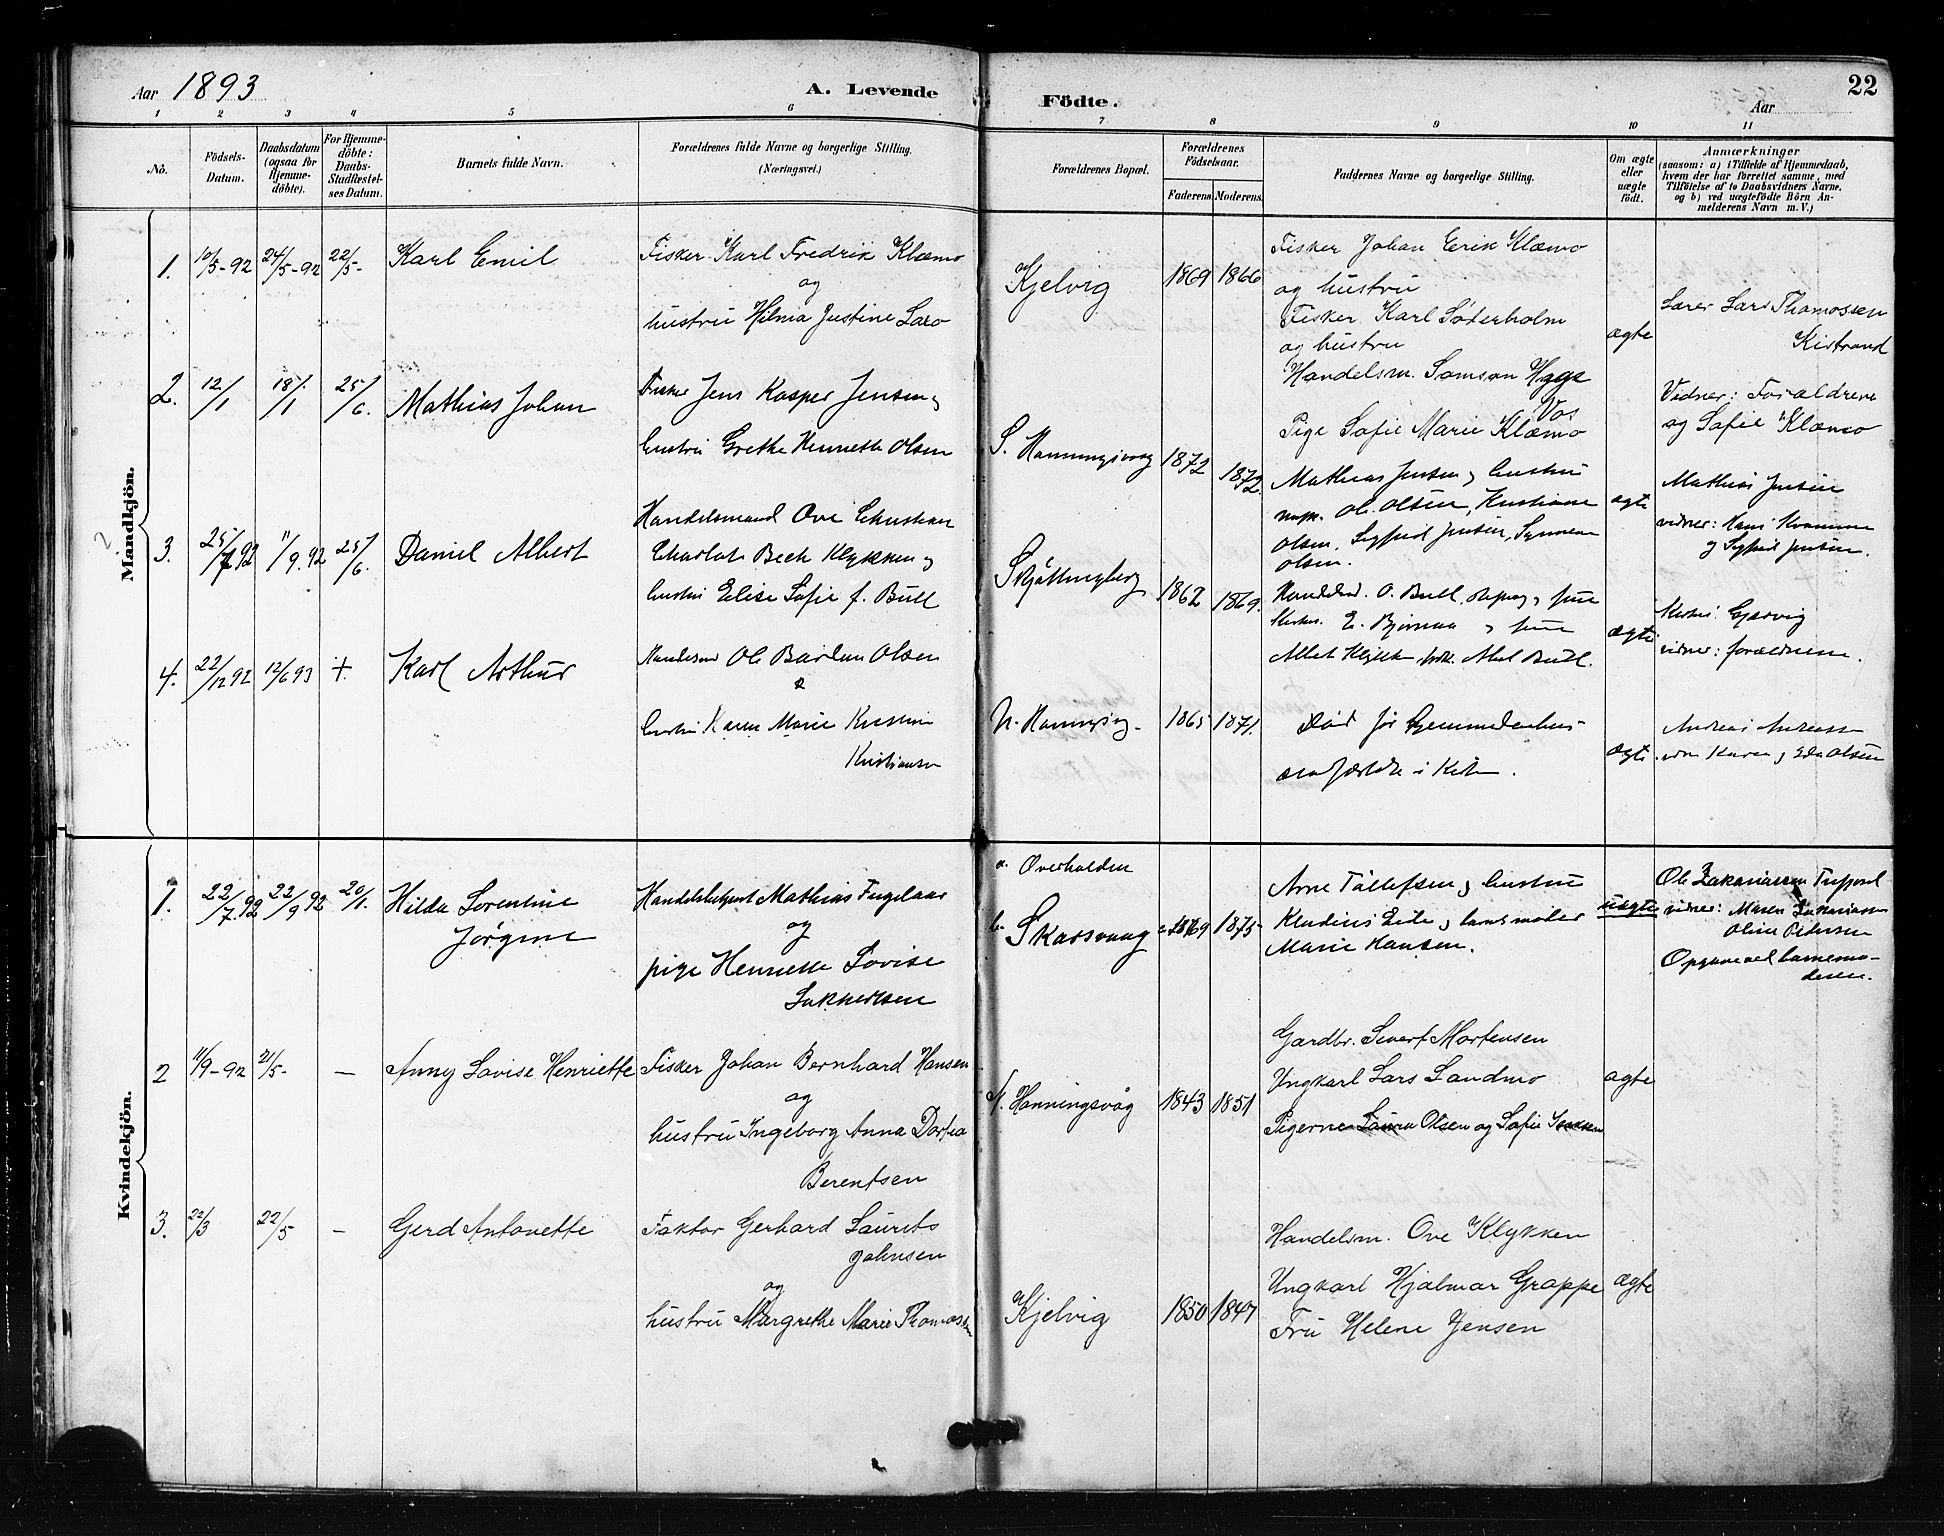 Aar 1893
A. Levende
Födte.
Aar
22
1 2 3 4 5 6 7 8 9 10 11
No.
Födsels-
Datum.
Daabsdatum
(ogsaa for
Hjemme-
döbte).
For Hjemme-
döbte:
Daabs-
Stadfæstel-
ses Datum.
Barnets fulde Navn.
Forældrenes fulde Navne og borgerlige Stilling.
(Næringsvei.)
Forældrenes Bopæl.
Forældrenes
Födselsaar.
Faderens
Moderens.
Faddernes Navne og borgerlige Stilling.
Om ægte
eller
uægte
födt.
Anmærkninger
(saasom: a) i Tilfælde af Hjemmedaab,
hvem der har forrettet samme, med
Tilföielse af to Daabsvidners Navne,
og b) ved uægtefödte Börn An-
melderens Navn m. V.)
Mandkjön.
1. 10/5-92 24/5-92 22/5- Karl Emil
Fisker Karl Fredrik Klæmo
og
hustru Hilma Justine Saro
Kjelvig 1869 1866
Fisker Johan Erik Klæmo
og hustru
Fisker Karl Søderholm
og hustru
Handelsm. Samson Hygge
Vos
Pige Sofie Marie Klæmo
ægte
Lærer Lars Thomassen
Kistrand
Vidner: Forældrene
og Sofie Klæmo
2. 12/1 18/1 25/6. Mathias Johan
Fisker Jens Kasper Jensen og
hustru Grethe Hennette Olsen
S. Honningsvaag 1872 1872.
Mathias Jensen og hustru
Ole Olsen, Kristiane
Olsen, Sigfrid Jensen,
Olsen.
ægte
Mathias Jensen
vidner: Hans
og Sigfrid Jensen.
3. 25/7 92 11/9.92 25/6. Daniel Albert
Handelsmand Ove Christian
Charlot Bech Klykken og
hustru Elise Sofie f. Bull
Skjøttingberg 1862 1869.
O. Bull, og frue
E. og frue
Albert Klykk Abel Bull.
ægte
Gjærvig
vidner: forældrene.
4. 22/12 92 12/6 93 +. Karl Arthur
Ole Olsen
&
hustru Karen Marie Kristine
Kristiansen
N. Honningsvag 1865 1871.
Død før hjemmedaaben
stadfæstede i Kirken.
ægte
Andreas Andreassen
Karen og Olsen
Kvindekjön.
1. 22/7 92 22/9 92 20/1. Hilda Sorentine
Jørgine
Handelsbetjent Mathias Fuglaar
og
pige Henrette Lovise
Sakkariasen
a. Overhalden
b. Skarsvaag 1869 1875
Arne Tollefsen og hustru
Eide og barnsmoder
Marie Hansen.
uægte
Ole Zakariassen
vidner: Maren Zakariassen
Oline Pedersen
Opgave ved barnemo-
deren.
2 11/9-92 21/5- — Anny Lovise Henriette
Fisker Johan Bernhard Hansen
og
hustru Ingeborg Anna Dortea
Berentsen
N. Honningsvåg 1843 1851
Gardbr. Sivert Mortensen
Ungkarl Lars Sandmo
Pigerne Laura Olsen og Sofie
ægte
3. 22/3 22/5 — Gerd Antonette
Faktor Gerhard Laurits
Johnsen
og
hustru Margrethe Marie Thomassen
Kjelvig 1850 1847
Handelsm. Ove Klykken
Ungkarl Hjalmar Grappe
Fru Helene Jensen
ægte